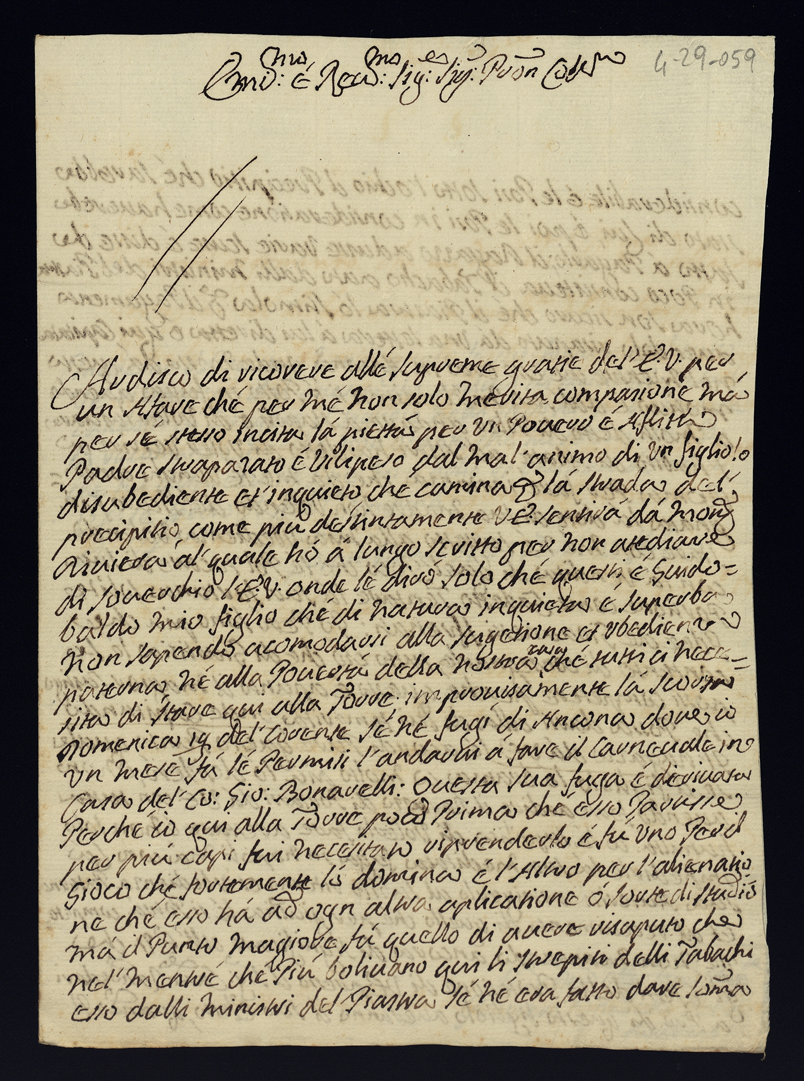 4-29-059
Em.mo é Rev.mo Sig.r Sig.r Pron Col.mo
Ardisco di ricorere allé supreme gratie del'E.V. per
un Afare ché per mé non solo merita compasione má
per sé stesso incita lá pietá per un Povero é Aflitto
Padre strapazato é vilipeso dal mal'animo di un figliolo
disubediente et inquieto che camina p la strada del
precipitio come piú destintamente V.E. sentirá dá Mons.r
Riviera al quale hó á lungo scritto per non atediare
di soverchio l'E.V. onde lé diró solo ché questi é Guido=
baldo mio figlio ché di natura inquieta é superba
non sapendo acomodarsi alla sugetione et ubedienza
paterna né alla Povertá della nostra casa ché tutti ci nece=
sita di stare qui alla Torre improvisamente lá scorsa
Domenica 19 del corente sé né fugí di Ancona dove io
un mese fá lé Permisi l'andarvi á fare il Carnevale in
Casa del Co: Gio: Bonarelli: Questa sua fuga é derivata
Perché io qui alla Torre poco Prima che esso Partisse
per piú capi fui necesitato riprenderlo é fú uno Per il
Gioco ché fortemente ló domina é l'Altro per l'alienatio
ne ché esso há ad ogn altra aplicatione ó sorte di studio
má il Punto magiore fú quello di avere risaputo che
nel mentré ché Piú bolivano qui li strepiti delli Tabachi
esso dalli ministri del Piastra sé né era fatto dare soma